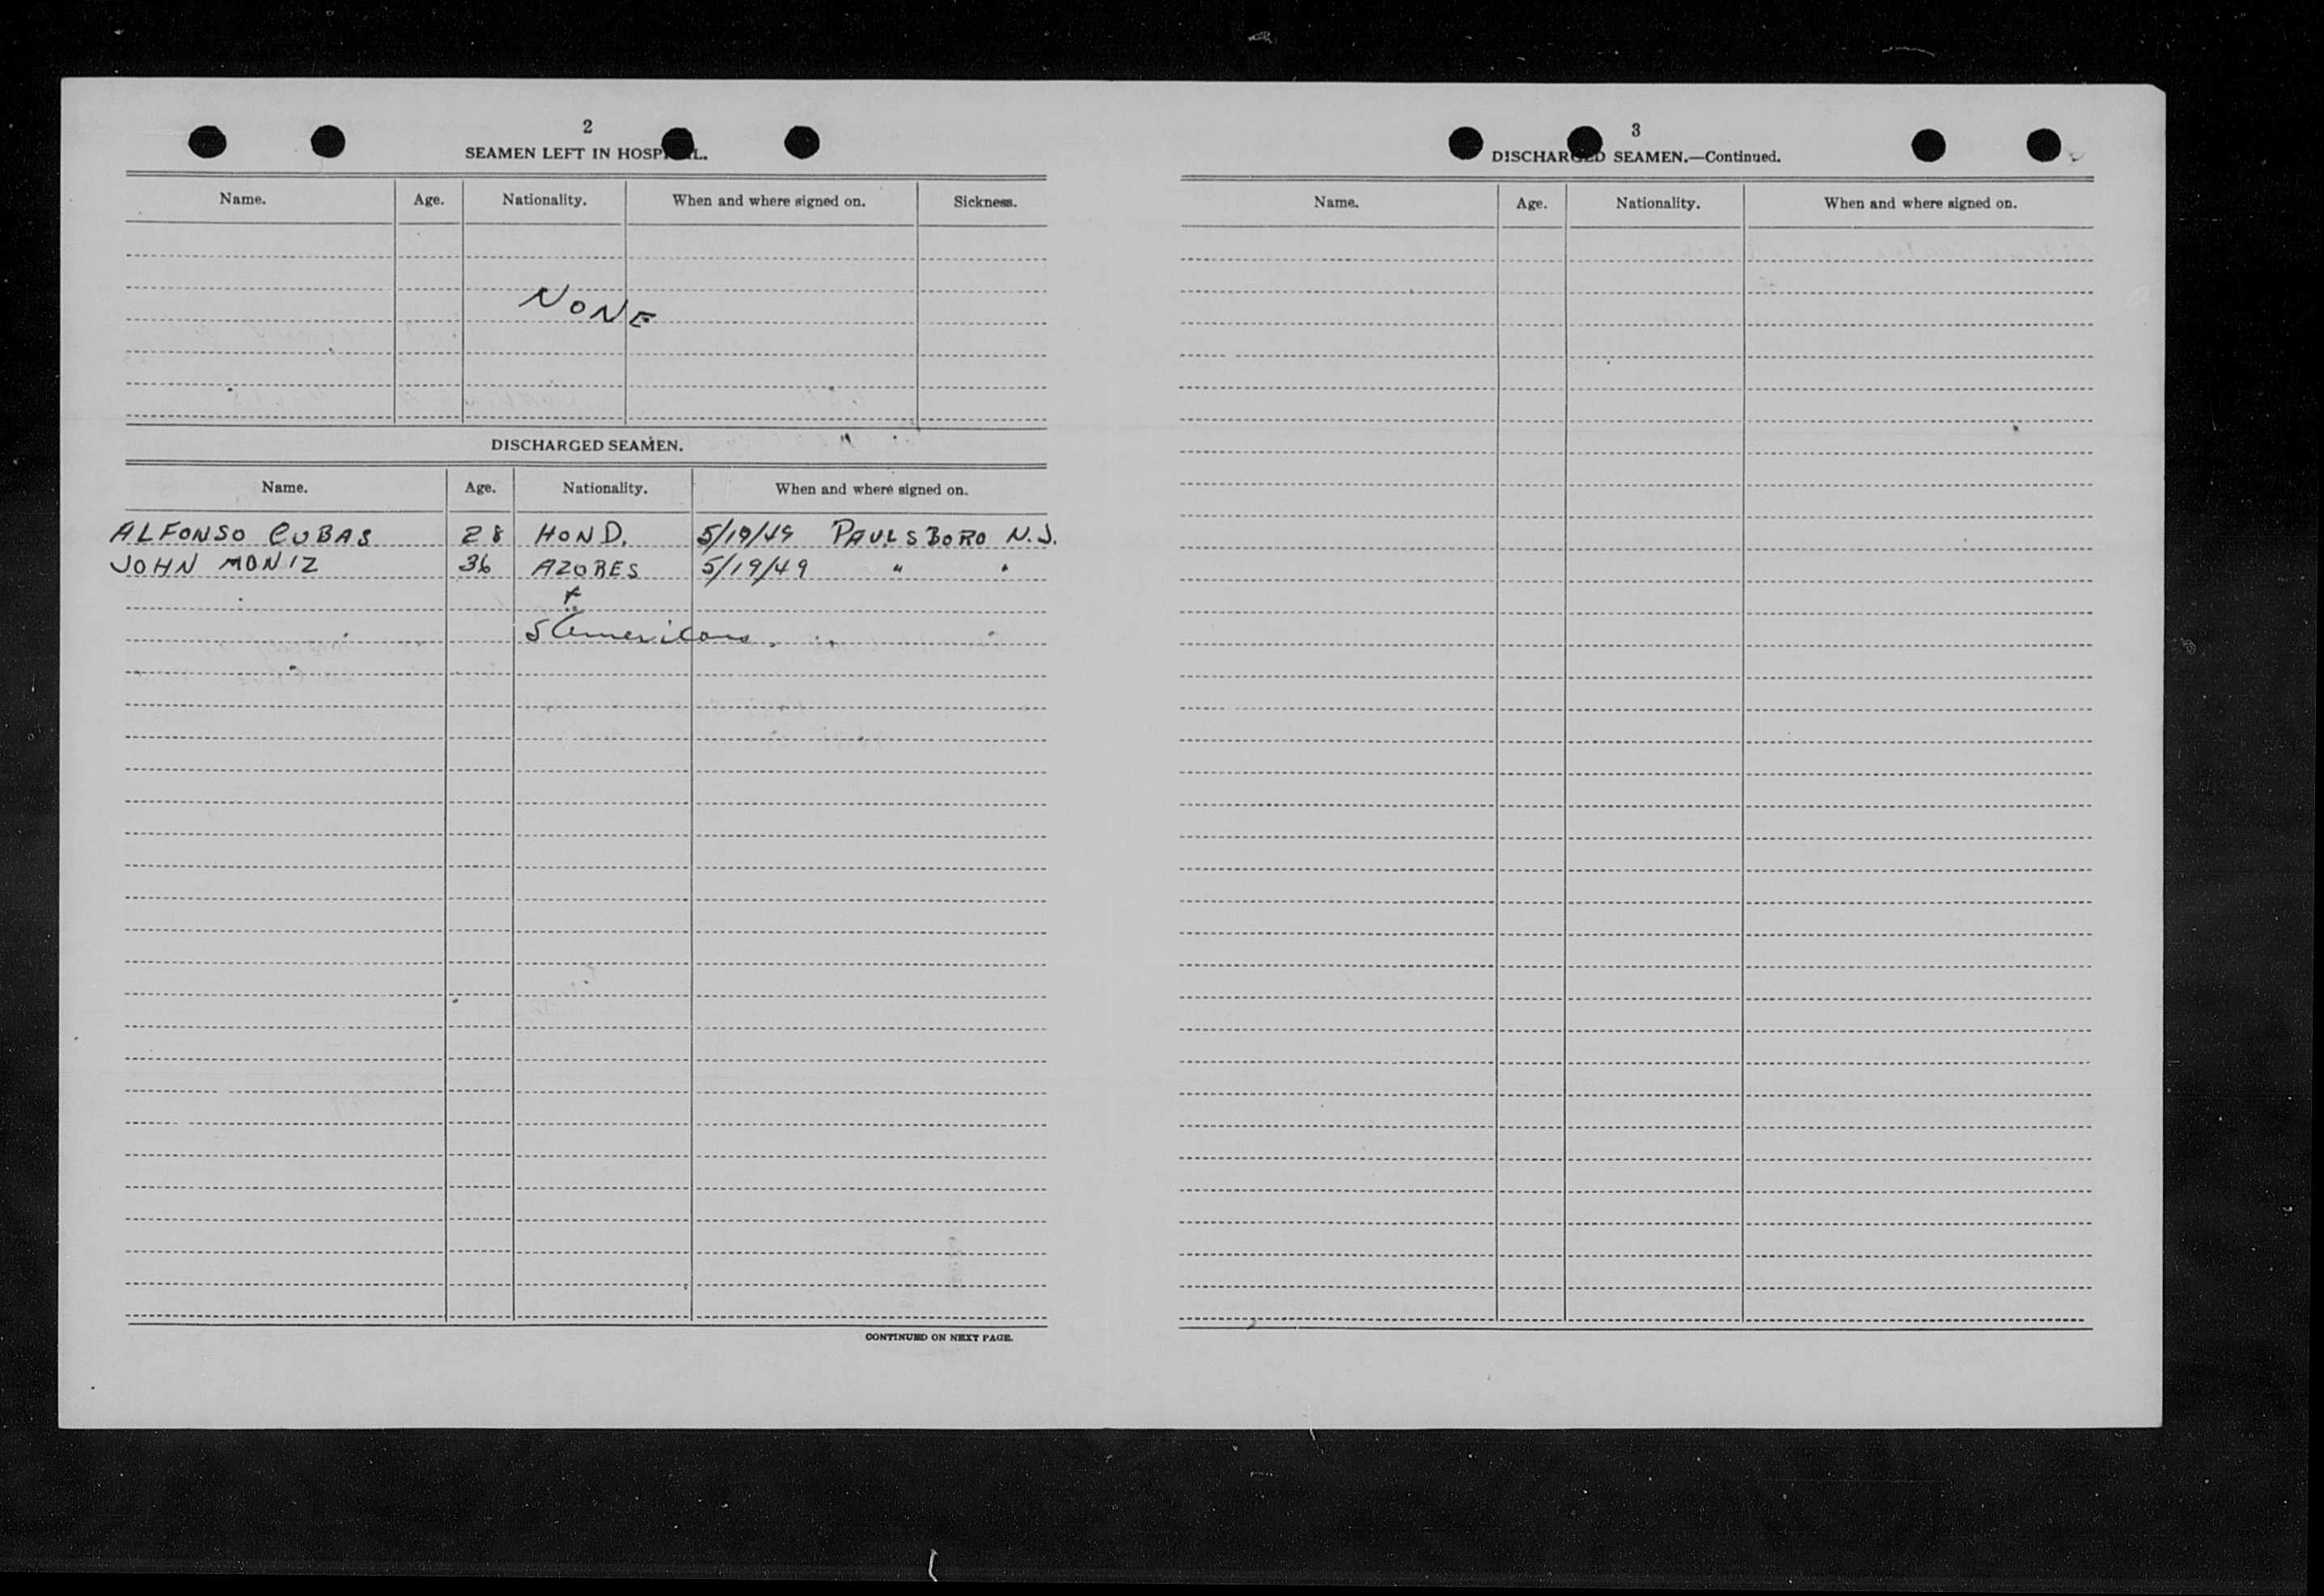 2
SEAMEN LEFT IN HOSP L.
Name. Age. Nationality. When and where signed on. Sickness.
NONE
DISCHARGED SEAMEN.
Name. Age. Nationality. When and where signed on.
ALFONSO CUBAS 28 HOND. 5/19/49 PAULSBORO N.J.
JOHN MONIZ 36 AZORES 5/19/49 " "
+
5 Americans
CONTINUED ON NEXT PAGE.
3
DISCHARGED SEAMEN.—Continued.
Name. Age. Nationality. When and where signed on.